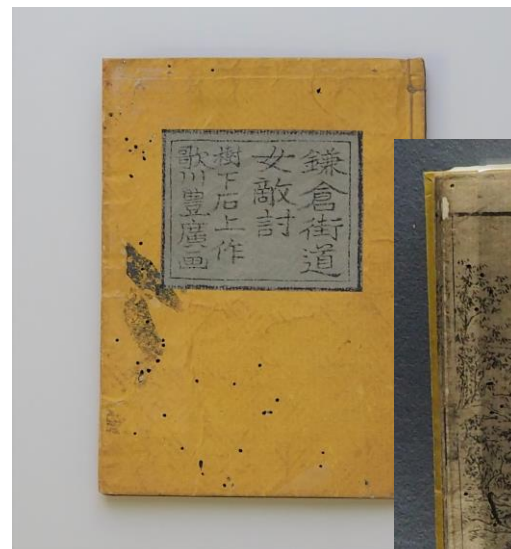 鎌倉街道
女敵討
樹下石上作
歌川豊廣画